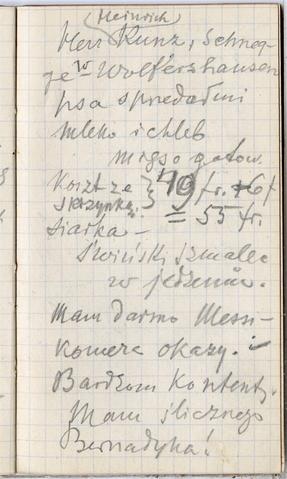 (Heinrich)
Herr Kunz, Schneg-
ge w Wolfershausen
psa sprzedał mi
mleko i chleb
mięso gotow.
Koszt ze } 49 fr. + 6 f
skrzynką } = 55 fr.
siarka –
Świński szmalec
w jedzeniu.
Mam darmo Messi-
komera okazy.
Bardzom kontent.
Mam ślicznego
Bernadyna!